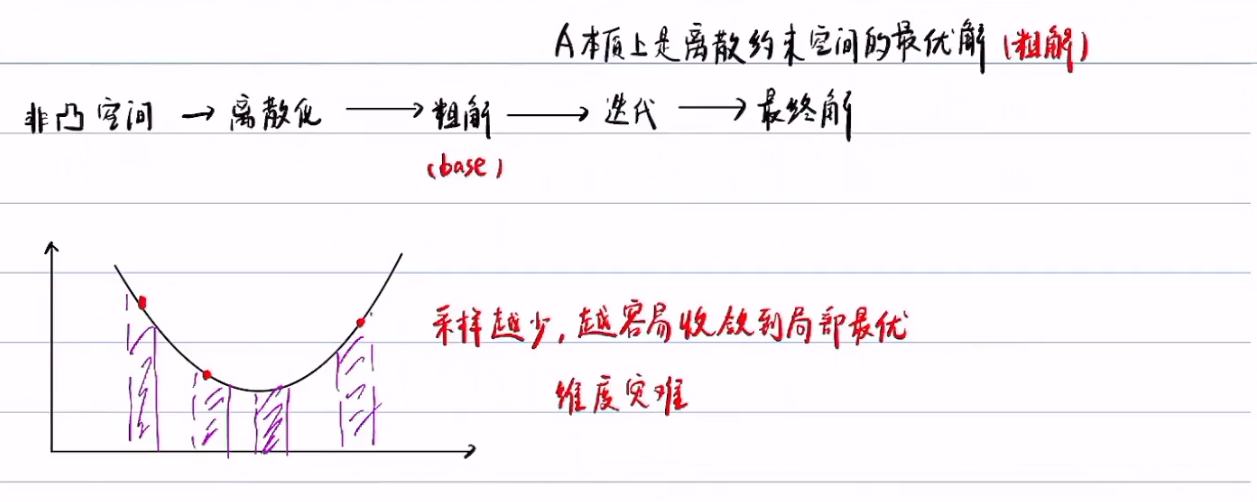 A本质上是离散约束空间的最优解 (粗解)
非凸空间 → 离散化 → 粗解 → 迭代 → 最终解
(base)
采样越少，越容易收敛到局部最优
维度灾难